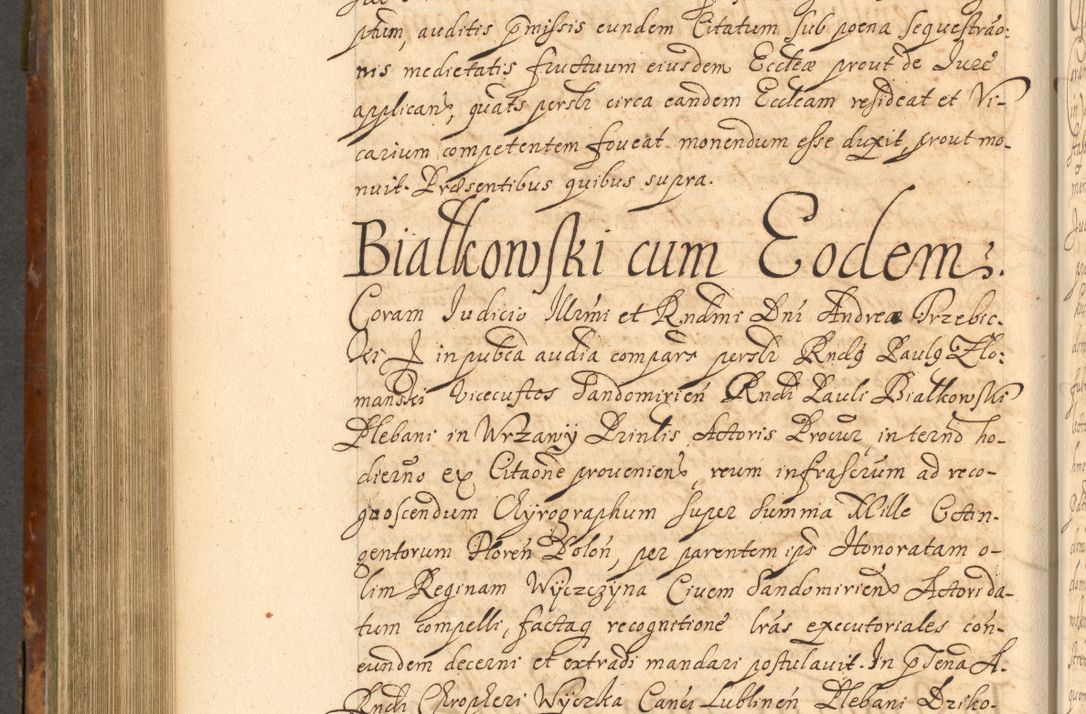 ptum, auditis p̄missis eundem Citatum sub poena sequestrāo:
nis medietatis fructuum eiusdem Ecclēæ prout de Jure
applican̄, quāts persłr circa eandem Ecclēam resideat et Vi-
carium competentem foveat monendum esse dixit prout mo-
nuit. Præsentibus quibus supra.
Białkowski cum Eodem.
Coram Judicio Illr̄mi et Rndm̄i Dn̄i Andreæ Trzebic-
ki in pub̄ca audīa comparx persłr Rnd9 Paul9 Zło:
mański Vicecustos Sandomirień Rndi Pauli Białkowski
Plebani in Wrzawy Prin̄lis Actoris Procur̄ in tern̄o ho-
dierno ex Citaōne provenien̄, reum infrascr̄um ad reco-
gnoscendum Chyrographum super summa Mille Octin-
gentorum Floren̄ Polon̄, per parentem ips̄ Honoratam o-
lim Reginam Wyczczyna Civem Sandomirien̄ Actori da-
tum compelli, factaq recognitione lr̄as executoriales con̄
eundem decerni et extradi mandari postulavit. In p̄sena A.
Rndi Chrophori Wyczka Can̄ci Lublinen̄ Plebani Dziko-